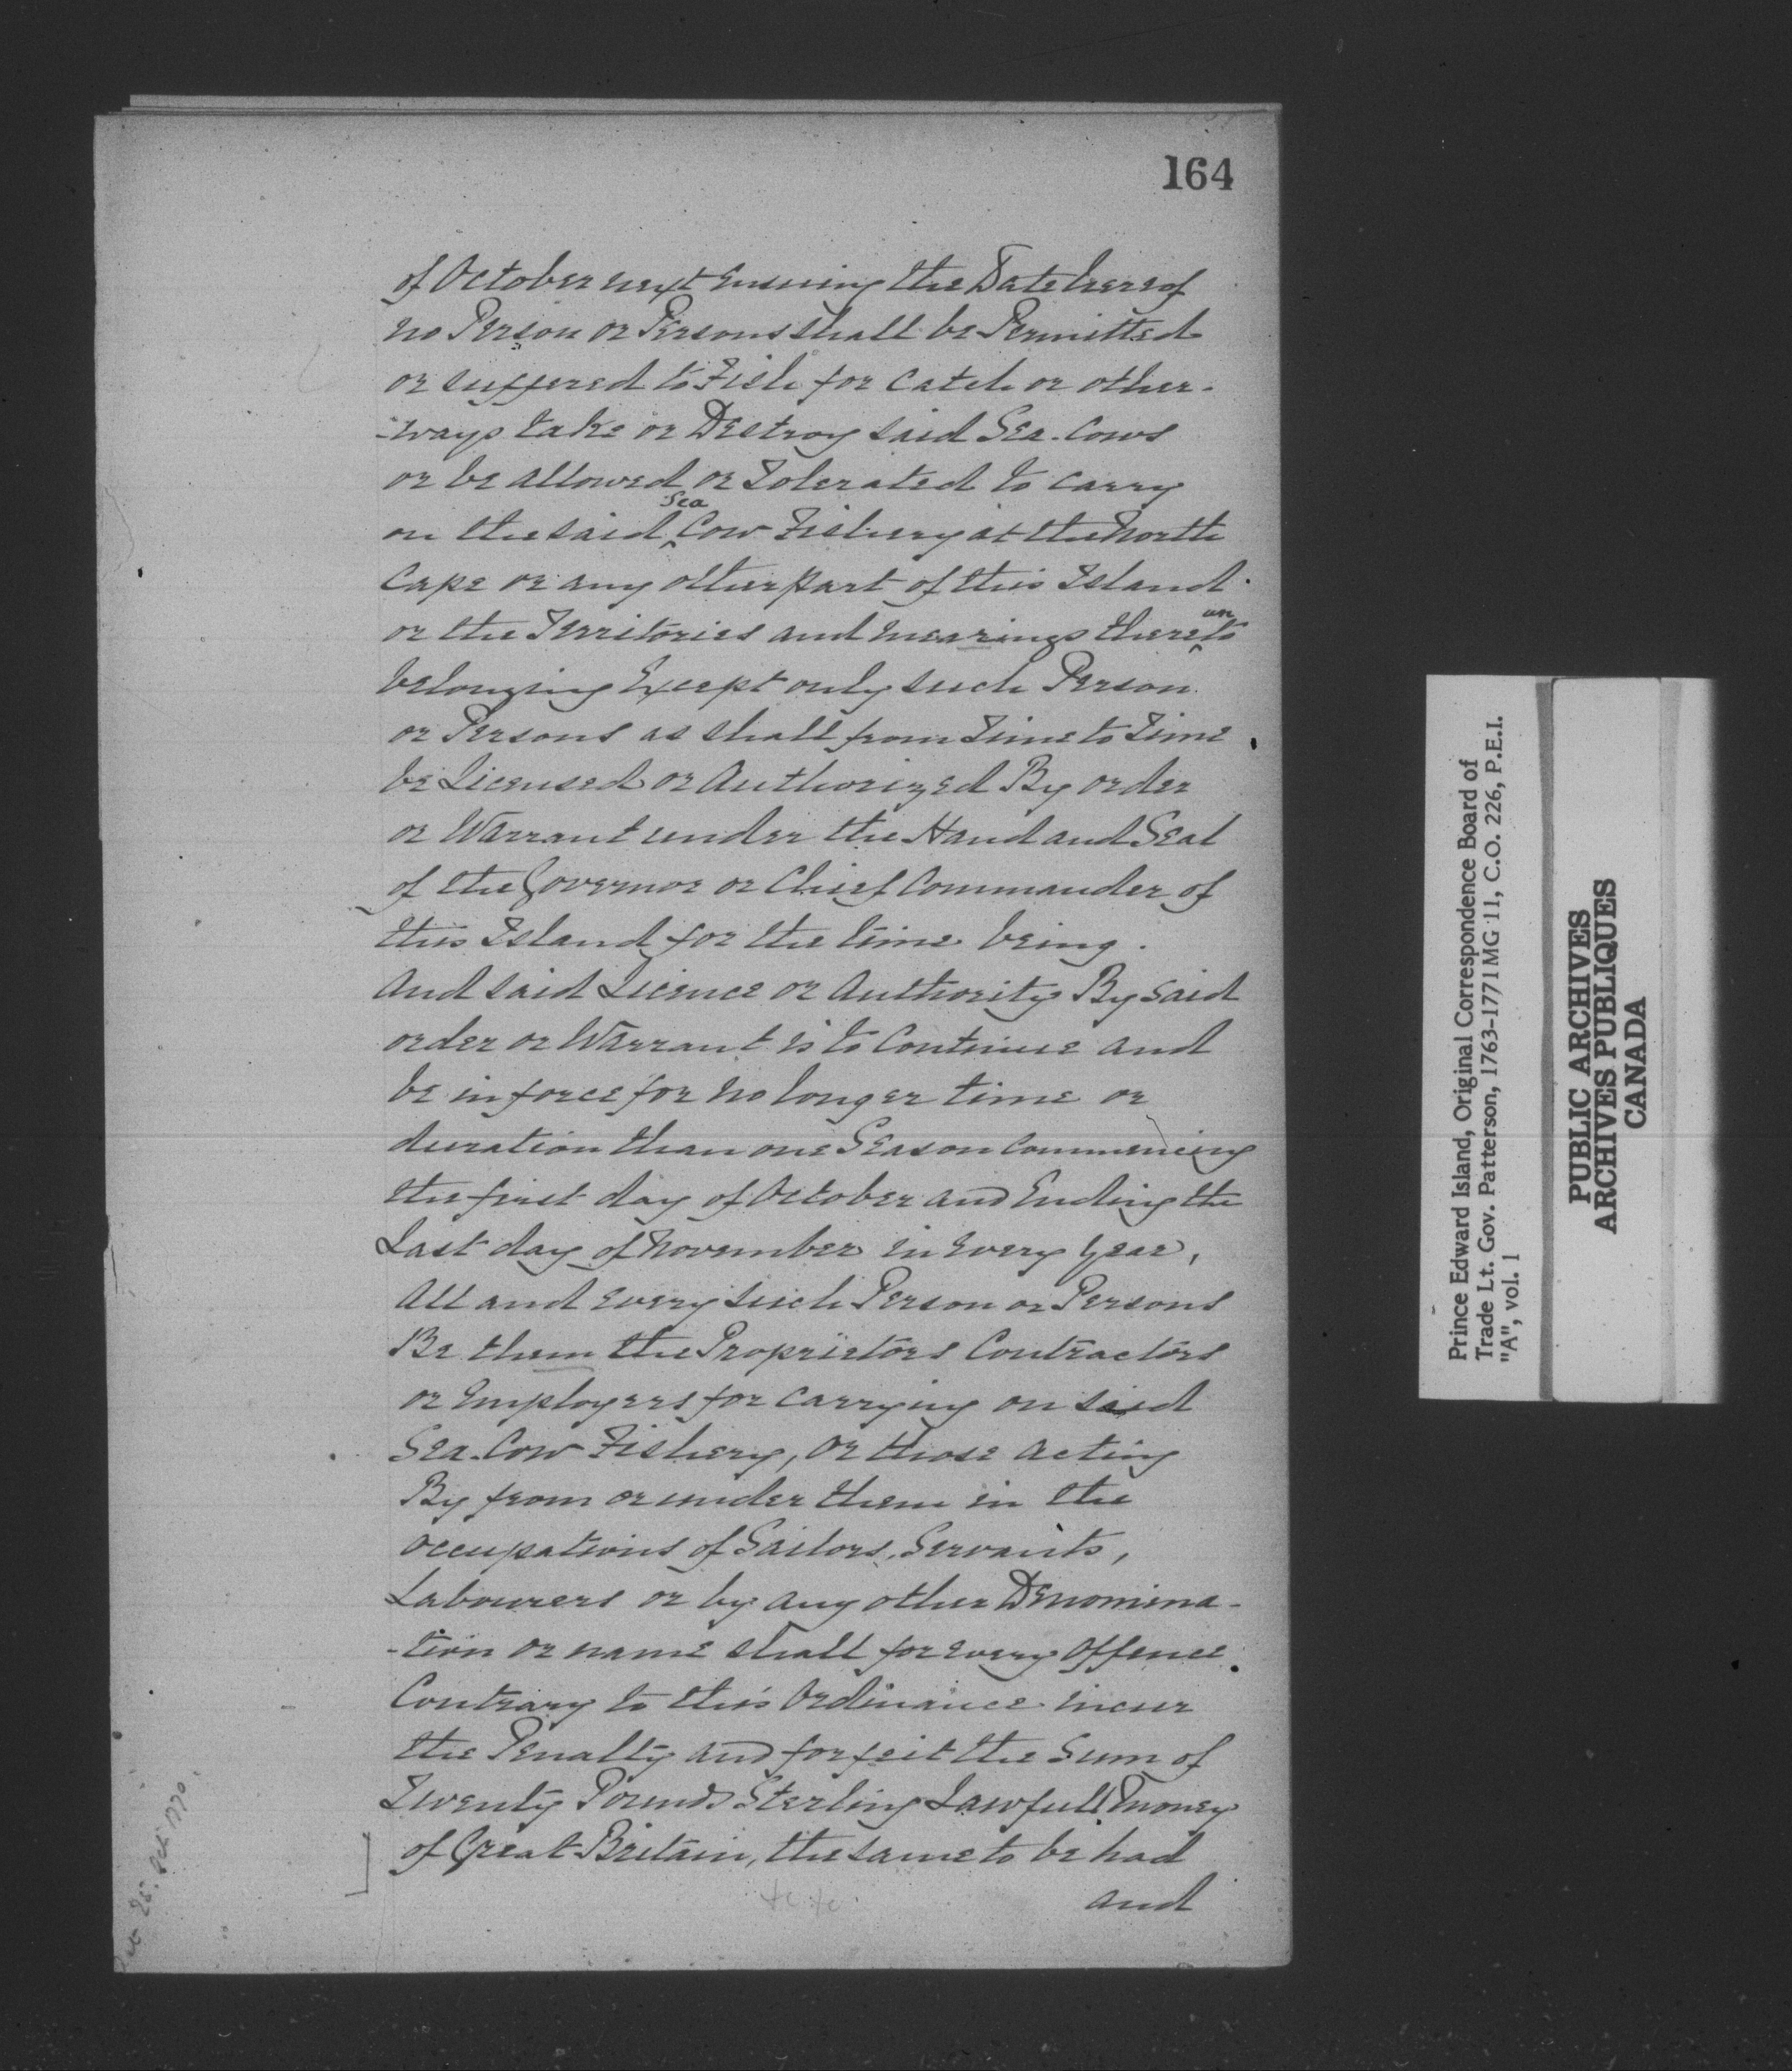 164
of October next Ensuing the Date hereof
no Person or Persons shall be Permitted
or suffered to Fish for Catch or other-
-ways take or Destroy said Sea-Cows
or be allowed or Tolerated to carry
Sea
on the said ^ Cow Fishery at the North
Cape or any other part of this Island
un
or the Territories and mearings there^to
belonging Except only such Person
or Persons as shall from Time to Time
be Licensed or Authorized By order
or Warrant under the Hand and Seal
of the Governor or Chief Commander of
this Island for the time being.
And said Licence or Authority By said
order or Warrant is to Continue and
be in force for no longer time or
duration than one Season Commencing
the first day of October and Ending the
Last day of November in Every Year,
All and Every such Person or Persons
Be them the Proprietors Contractors
or Employers for carrying on said
Sea-Cow Fishery, or those acting
By from or under them in the
occupations of Sailors, Servants,
Labourers or by any other Denomina-
-tion or name shall for Every Offence
Contrary to this Ordinance incur
the Penalty and forfeit the Sum of
Twenty Pounds Sterling Lawfull Money
of Great Britain, the same to be had
and
25. Oct 1770.
Prince Edward Island, Original Correspondence Board of
Trade Lt. Gov. Patterson, 1763-1771 MG 11, C.O. 226, P.E.I.
"A", vol. 1
PUBLIC ARCHIVES
ARCHIVES PUBLIQUES
CANADA